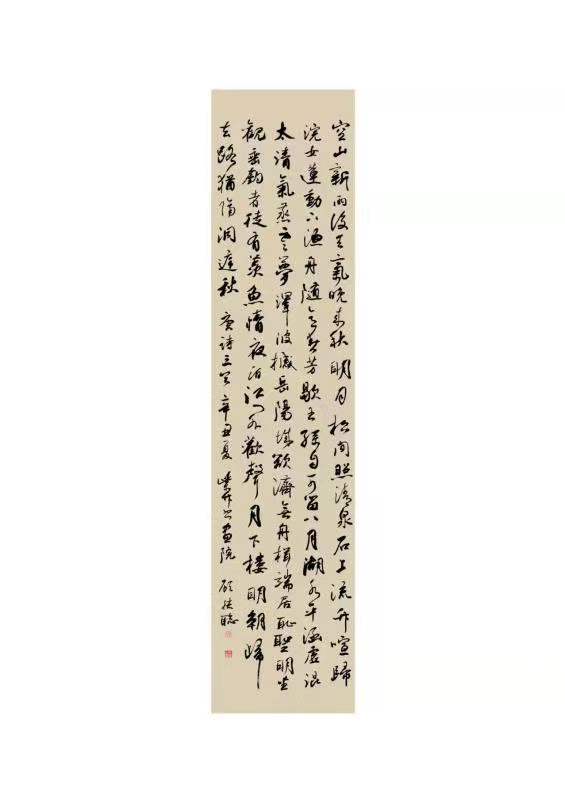 空山新雨後天氣晚來秋明月松間照清泉石上流竹喧歸
浣女蓮動下漁舟隨意春芳歇王孫自可留八月湖水平涵虛混
太清氣蒸雲夢澤波撼岳陽城欲濟無舟楫端居恥聖明坐
觀垂釣者徒有羨魚情夜泊江門外歡聲月下樓明朝歸
去路猶隔洞庭秋 唐詩三首 辛丑夏 畫院 顧